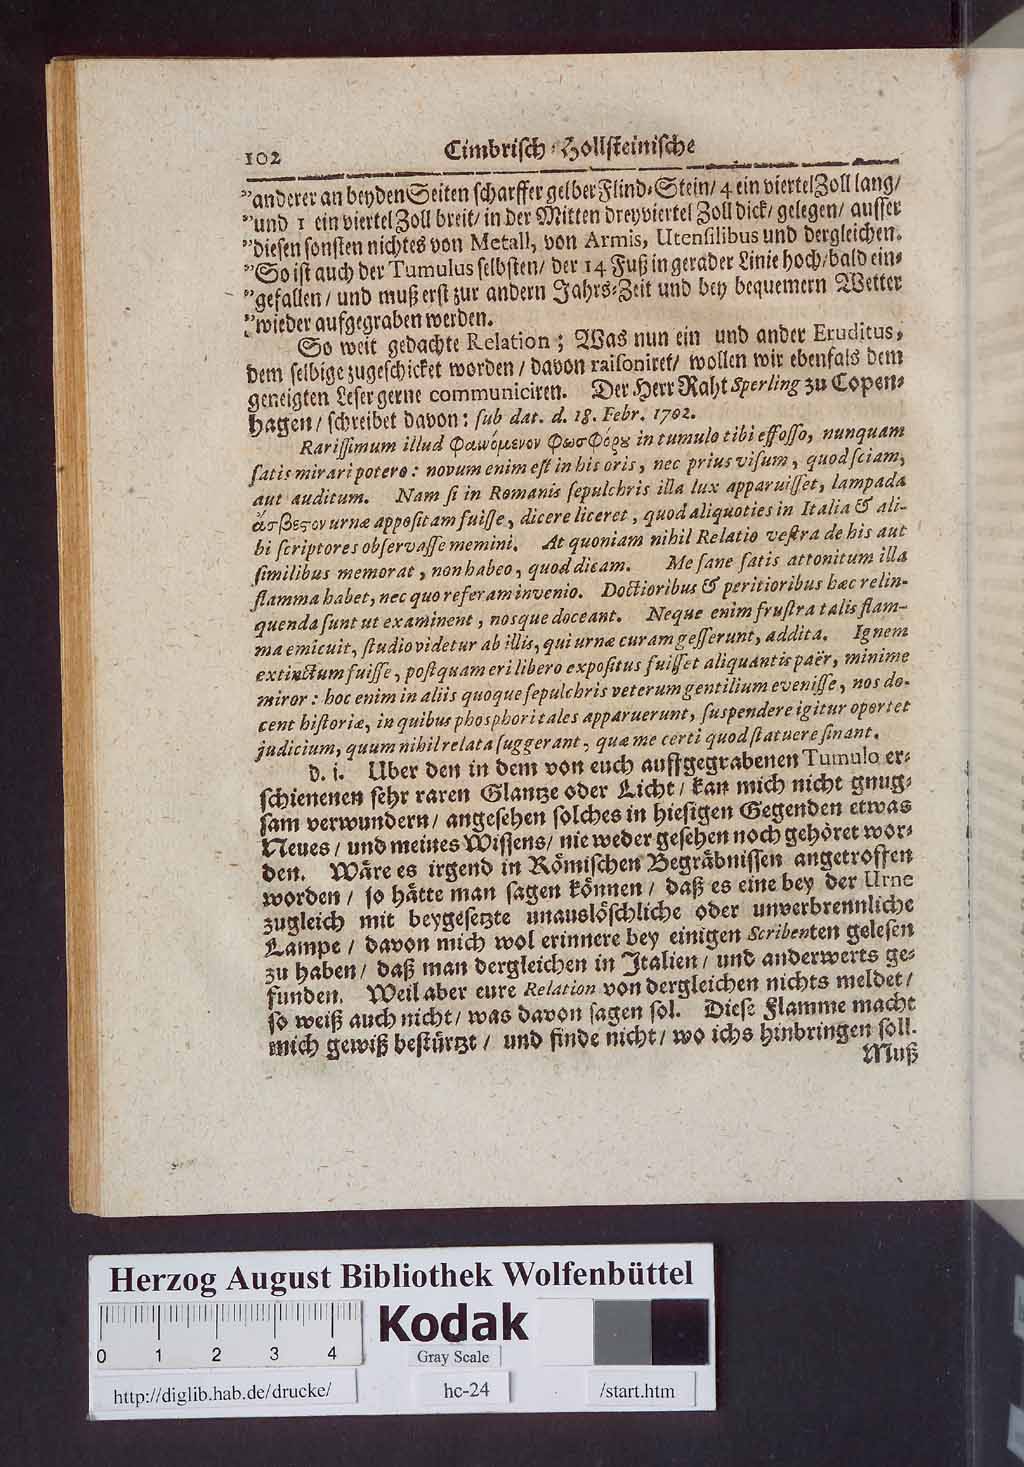 102
Cimbrisch-Hollsteinische
"anderer an beyden Seiten scharffer gelber Flind-Stein/ 4 ein viertel Zoll lang/
"und 1 ein viertel Zoll breit/ in der Mitten dreyviertel Zoll dick/ gelegen/ ausser
"diesen sonsten nichtes von Metall, von Armis, Utensilibus und dergleichen.
"So ist auch der Tumulus selbsten/ der 14 Fuß in gerader Linie hoch/ bald ein-
"gefallen/ und muß erst zur andern Jahrs-Zeit und bey bequemern Wetter
"wieder aufgegraben werden.
So weit gedachte Relation; Was nun ein und ander Eruditus,
dem selbige zugeschicket worden/ davon raisoniret/ wollen wir ebenfals dem
geneigten Leser gerne communiciren. Der Herr Raht Sperling zu Copen-
hagen/ schreibet davon: sub dat. d. 18. Febr. 1702.
Rarissimum illud Φαινόμενον ΦωσΦόρȣ in tumulo tibi effosso, nunquam
satis mirari potero: novum enim est in his oris, nec prius visum, quod sciam,
aut auditum. Nam si in Romanis sepulchris illa lux apparuisset, lampada
ἄσβεϛον urnæ appositam fuisse, dicere liceret, quod aliquoties in Italia & ali-
bi scriptores observasse memini. At quoniam nihil Relatio vestra de his aut
similibus memorat, non habeo, quod dicam. Me sane satis attonitum illa
flamma habet, nec quo referam invenio. Doctioribus & peritioribus hæc relin-
quenda sunt ut examinent, nosque doceant. Neque enim frustra talis flam-
ma emicuit, studio videtur ab illis, qui urnæ curam gesserunt, addita. Ignem
extinctum fuisse, postquam eri libero expositus fuisset aliquantis paër, minime
miror: hoc enim in aliis quoque sepulchris veterum gentilium evenisse, nos do-
cent historiæ, in quibus phosphori tales apparuerunt, suspendere igitur oportet
judicium, quum nihil relata suggerant, quæ me certi quod statuere sinant.
d. i. Uber den in dem von euch auffgegrabenen Tumulo er-
schienenen sehr raren Glantze oder Licht/ kan mich nicht gnug-
sam verwundern/ angesehen solches in hiesigen Gegenden etwas
Neues/ und meines Wissens/ nie weder gesehen noch gehöret wor-
den. Wäre es irgend in Römischen Begräbnissen angetroffen
worden/ so hätte man sagen können/ daß es eine bey der Urne
zugleich mit beygesetzte unauslöschliche oder unverbrennliche
Lampe/ davon mich wol erinnere bey einigen Scribenten gelesen
zu haben/ daß man dergleichen in Italien/ und anderwerts ge-
funden. Weil aber eure Relation von dergleichen nichts meldet/
so weiß auch nicht/ was davon sagen sol. Diese Flamme macht
mich gewiß bestürtzt/ und finde nicht/ wo ichs hinbringen soll.
Muß
Herzog August Bibliothek Wolfenbüttel
Kodak
0 1 2 3 4
Gray Scale
http://diglib.hab.de/drucke/
hc-24
/start.htm